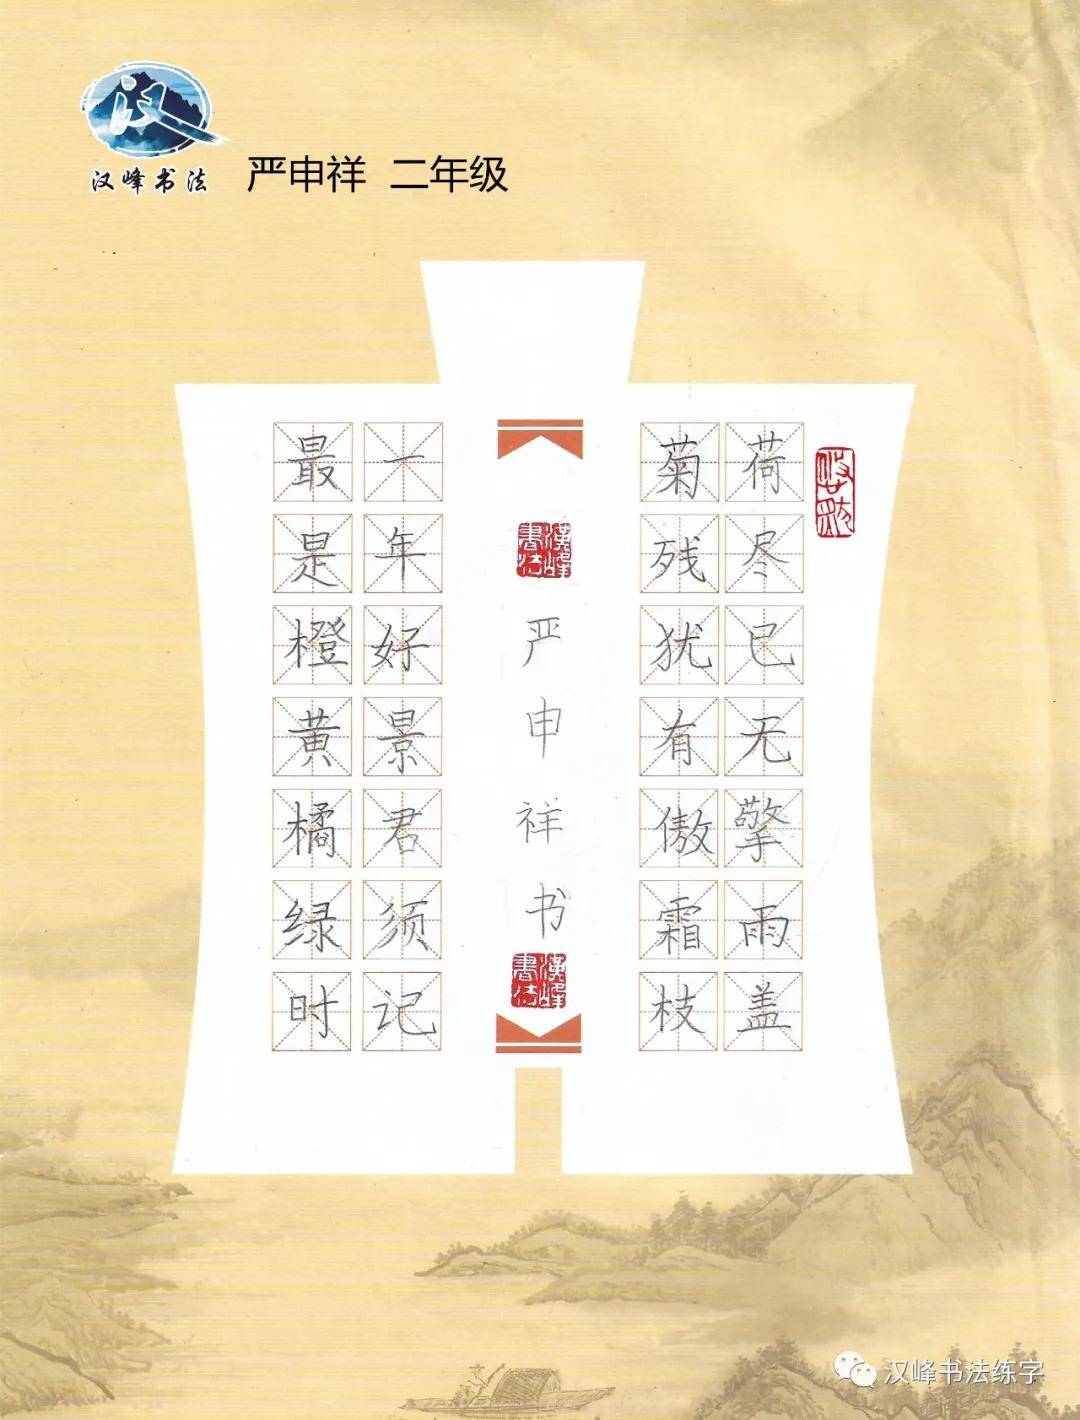 汉
汉峰书法
严申祥 二年级
荷尽已无擎雨盖
菊残犹有傲霜枝
漢峰書法
严申祥书
漢峰書法
一年好景君须记
最是橙黄橘绿时
汉峰书法练字